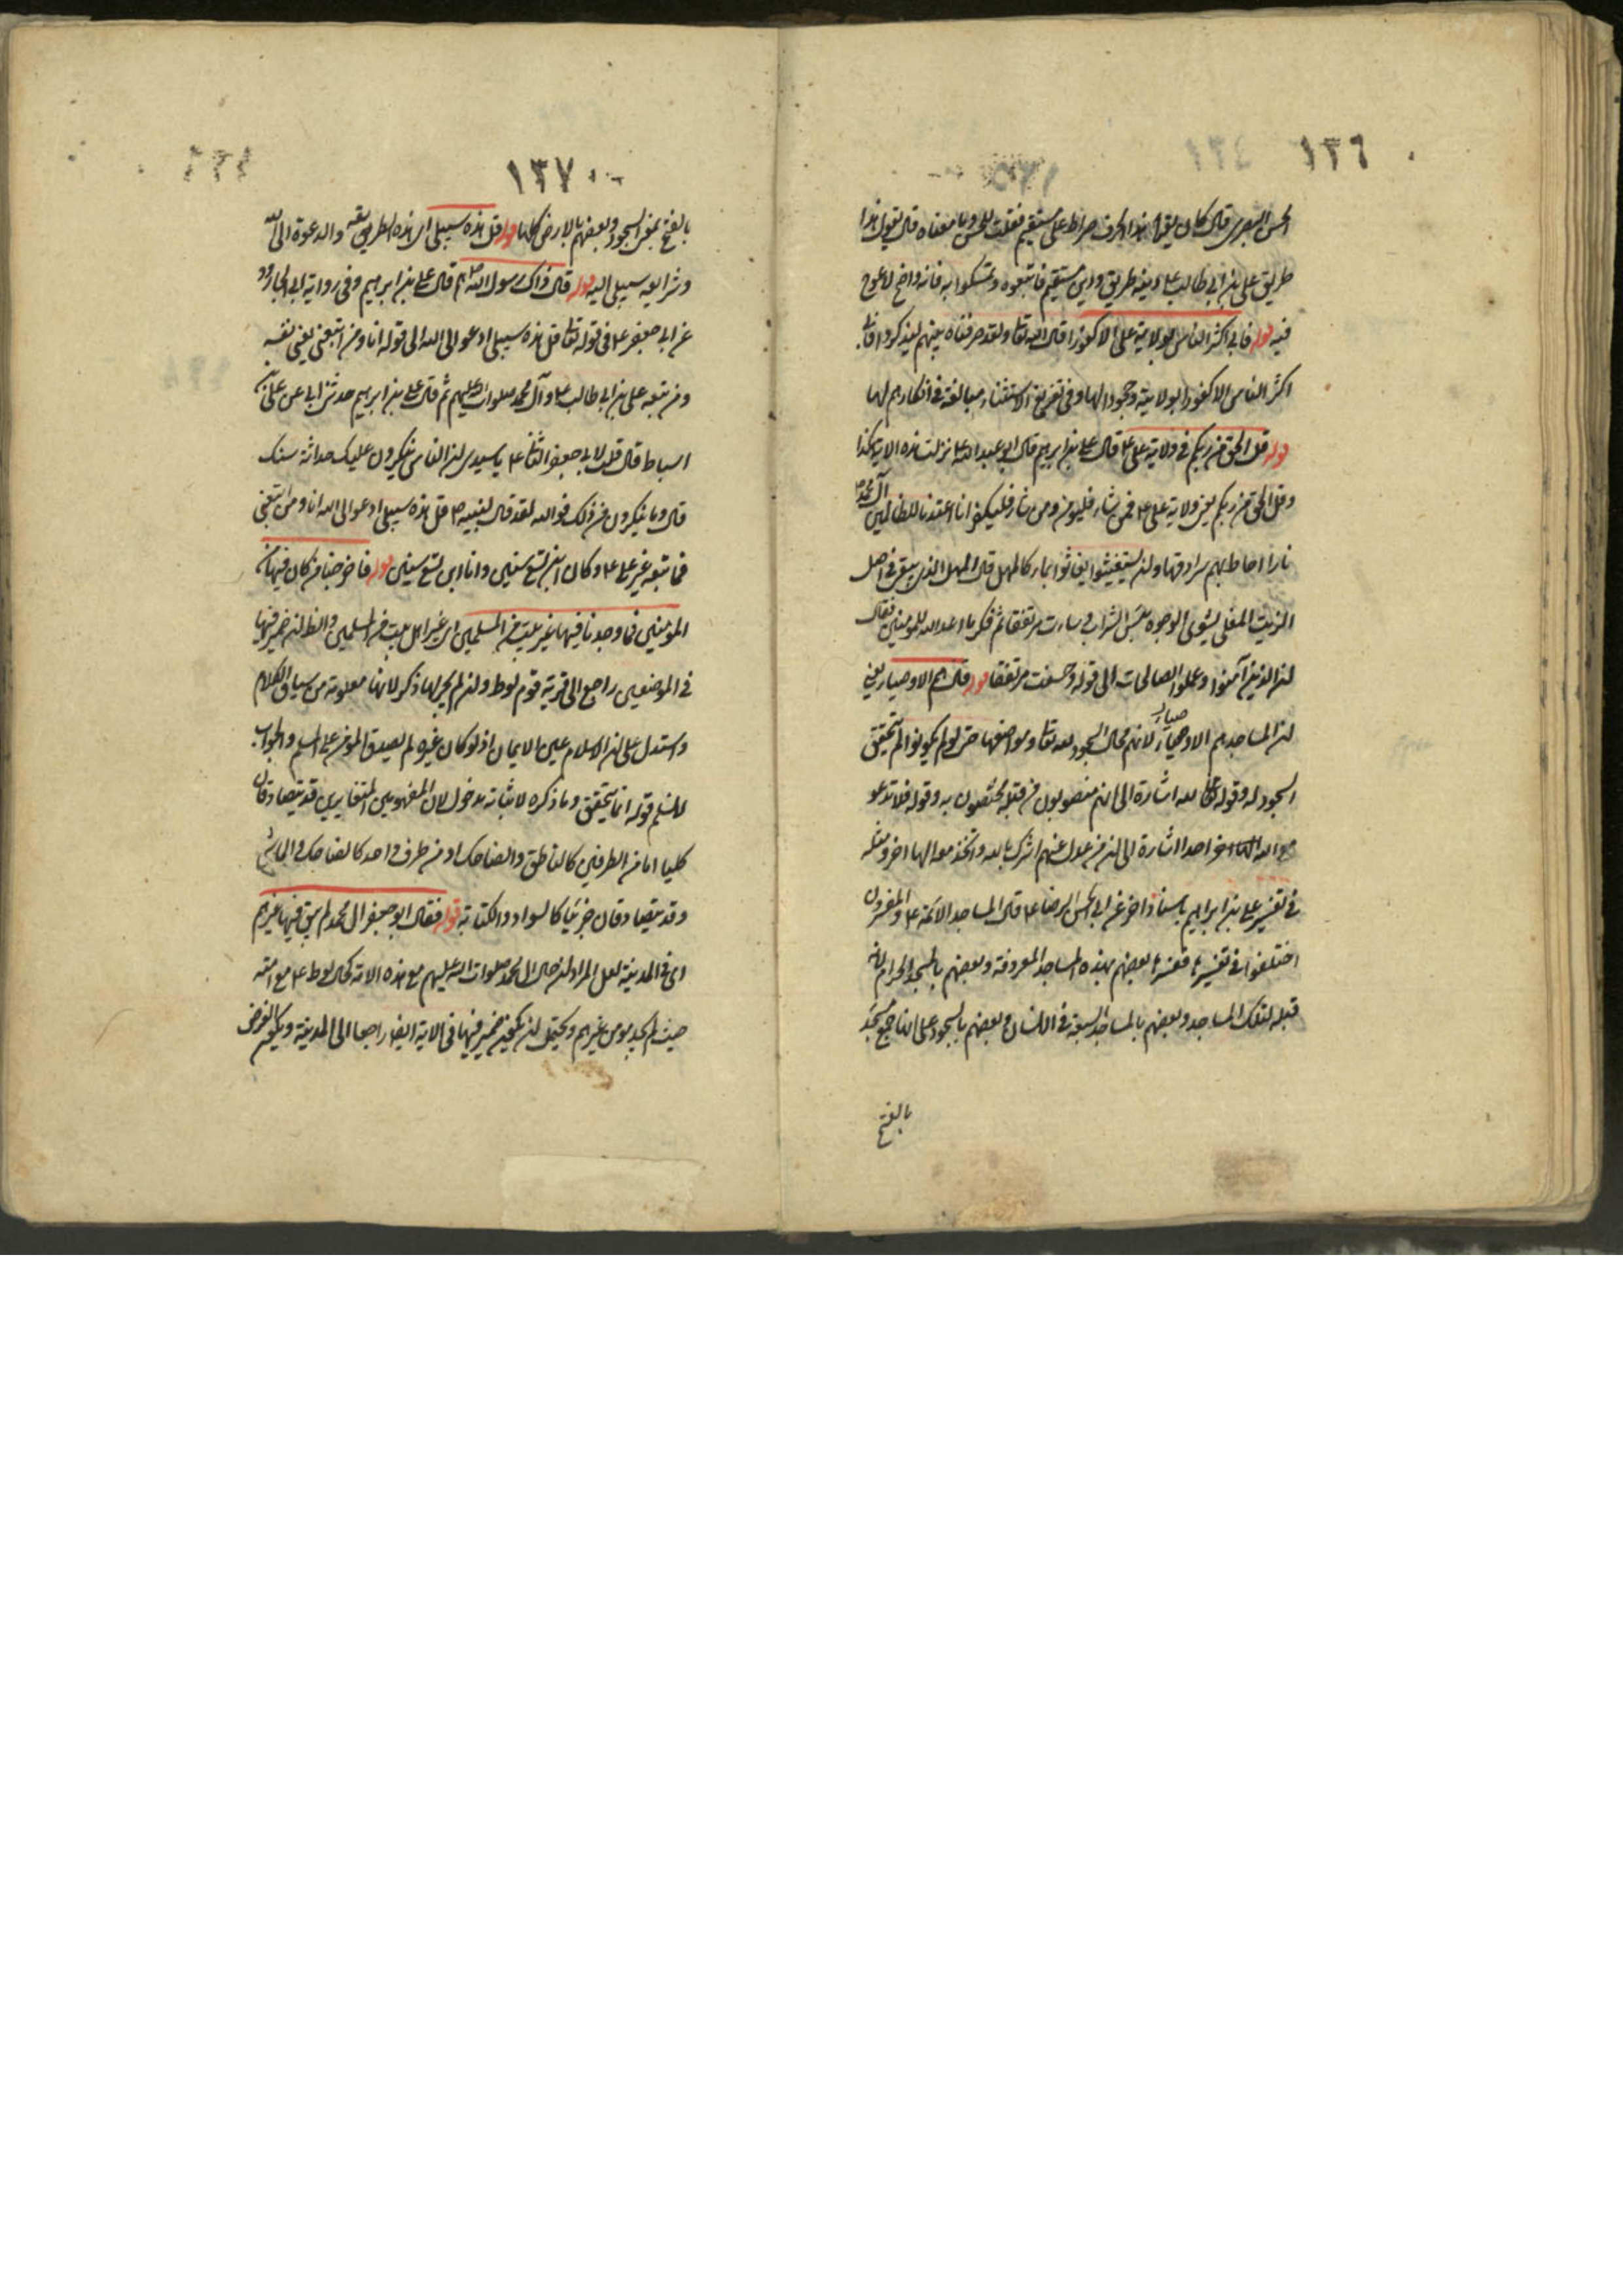 ١٣٦
الحسن البصري قال كان يقرأ هذا الحرف صراط علي مستقيم فقلت للحسن وما معناه قال يقول هذا
طريق علي بن ابي طالب ع ودينه طريق ودين مستقيم فاتبعوه وتمسكوا به فانه واضح لا عوج
فيه قوله فابى اكثر الناس بولاية علي الا كفورا قال الله تعالى ولقد صرفناه بينهم ليذكروا فابى
اكثر الناس الا كفورا بولايته وجحودا لها وفي تفريغ الاستثناء مبالغة في انكارهم لها
قوله قل الحق من ربكم في ولاية علي ع قال علي بن ابراهيم قال ابو عبد الله ع نزلت هذه الاية هكذا
وقل الحق من ربكم يعني ولاية علي ع فمن شاء فليؤمن ومن شاء فليكفر انا اعتدنا للظالمين آل محمد ص
نارا احاط بهم سرادقها وان يستغيثوا يغاثوا بماء كالمهل قال المهل الذي يبقى في اصل
الزيت المغلي يشوي الوجوه بئس الشراب وساءت مرتفقا ثم ذكر ما اعد الله للمؤمنين فقال
ان الذين آمنوا وعملوا الصالحات الى قوله وحسنت مرتفقا قوله قال هم الاوصياء يعني
ان المساجد هم الاوصياء صياء لانهم محال السجود لله تعالى ومواضعها حتى لو لم يكونوا لم يتحقق
السجود له وقوله تعالى لله اشارة الى انهم منصوبون من قبله مختصون به وقوله فلا تدعو
مع الله احدا اشارة الى ان من عدل عنهم اشرك بالله واتخذ معه الها اخر ومثله
في تفسير علي بن ابراهيم باسناد اخر عن ابي الحسن الرضا ع قال المساجد الائمة ع والمفسرون
اختلفوا في تفسيرها ففسرها بعضهم بهذه المساجد المعروفة وبعضهم بالمسجد الحرام لانه
قبلة لتلك المساجد وبعضهم بالمساجد السبعة في الانسان وبعضهم بالسجود على انها جمع مسجد
بالفتح
١٣٧
بالفتح بمعنى السجود وبعضهم بالارض كلها قوله قل هذه سبيلي اي هذه الطريقة والدعوة الى الله
وشرايعه سبيلي اليه قوله قال ذاك رسول الله ص قال علي بن ابراهيم وفي رواية ابي الجارود
عن ابي جعفر ع في قوله تعالى قل هذه سبيلي ادعوا الى الله الى قوله انا ومن اتبعني يعني نفسه
ومن تبعه علي بن ابي طالب ع وآل محمد صلوات الله عليهم ثم قال علي بن ابراهيم حدثني ابي عن علي بن
اسباط قال قلت لابي جعفر الثاني ع يا سيدي ان الناس ينكرون عليك حداثة سنك
قال وما ينكرون من ذلك فوالله لقد قال لنبيه ص قل هذه سبيلي ادعوا الى الله انا ومن اتبعني
فما تبعه غير علي ع وكان ابن تسع سنين وانا ابن تسع سنين قوله فاخرجنا من كان فيها من
المؤمنين فما وجدنا فيها غير بيت من المسلمين اي غير اهل بيت من المسلمين والظ ان ضمير فيها
في الموضعين راجع الى قرية قوم لوط وان لم يجر لها ذكر لانها معلومة من سياق الكلام
واستدل على ان الاسلام عين الايمان اذ لو كان غيره لم يصدق المؤمن على المسلم والجواب
للمسلم قوله انما يتحقق وما ذكره لاثباته مدخول لان المفهومين المتغايرين قد يتصادقان
كليا اما من الطرفين كالناطق والضاحك او من طرف واحد كالضاحك والماشي
وقد يتصادقان جزئيا كالسواد والكتابة قوله فقال ابو جعفر آل محمد لم يبق فيها غيرهم
اي في المدينة لعل المراد ان حال آل محمد صلوات الله عليهم مع هذه الامة كحال لوط ع مع امته
حيث لم يجد مؤمن غيرهم ويحتمل ان يكون ضمير فيها في الاية ايضا راجعا الى المدينة ويكون الغرض